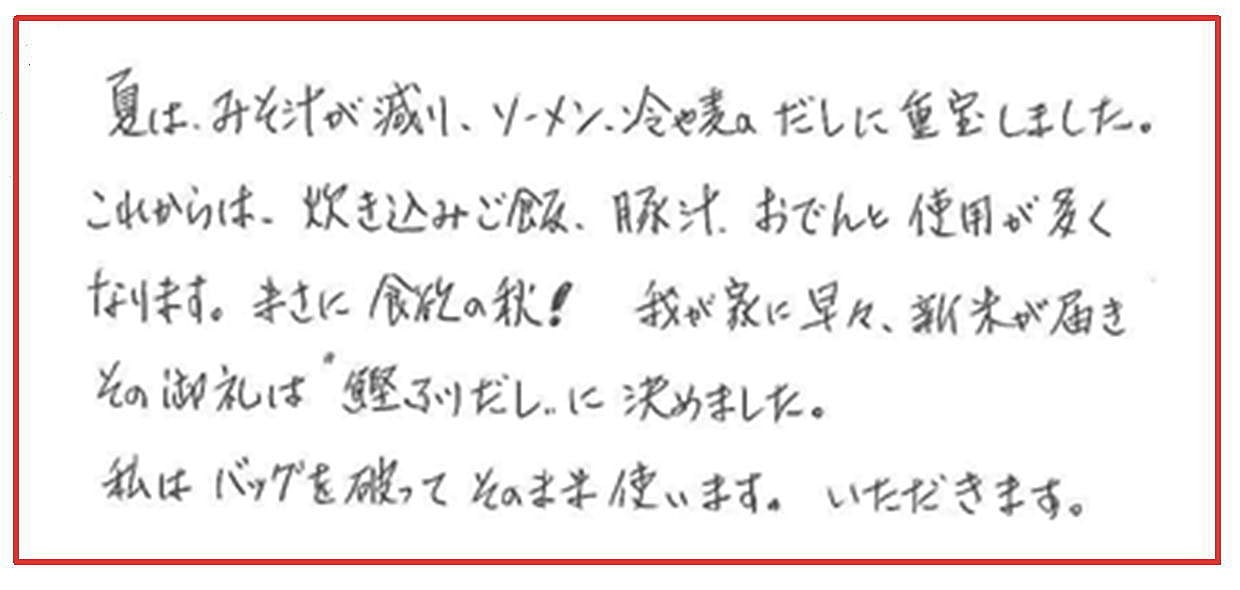 夏は、みそ汁が減り、ソーメン、冷や麦のだしに重宝しました。
これからは、炊き込みご飯、豚汁、おでんと使用が多く
なります。まさに食欲の秋！ 我が家に早々、新米が届き
その御礼は〝鰹ふりだし〟に決めました。
私はバッグを破ってそのまま使います。 いただきます。